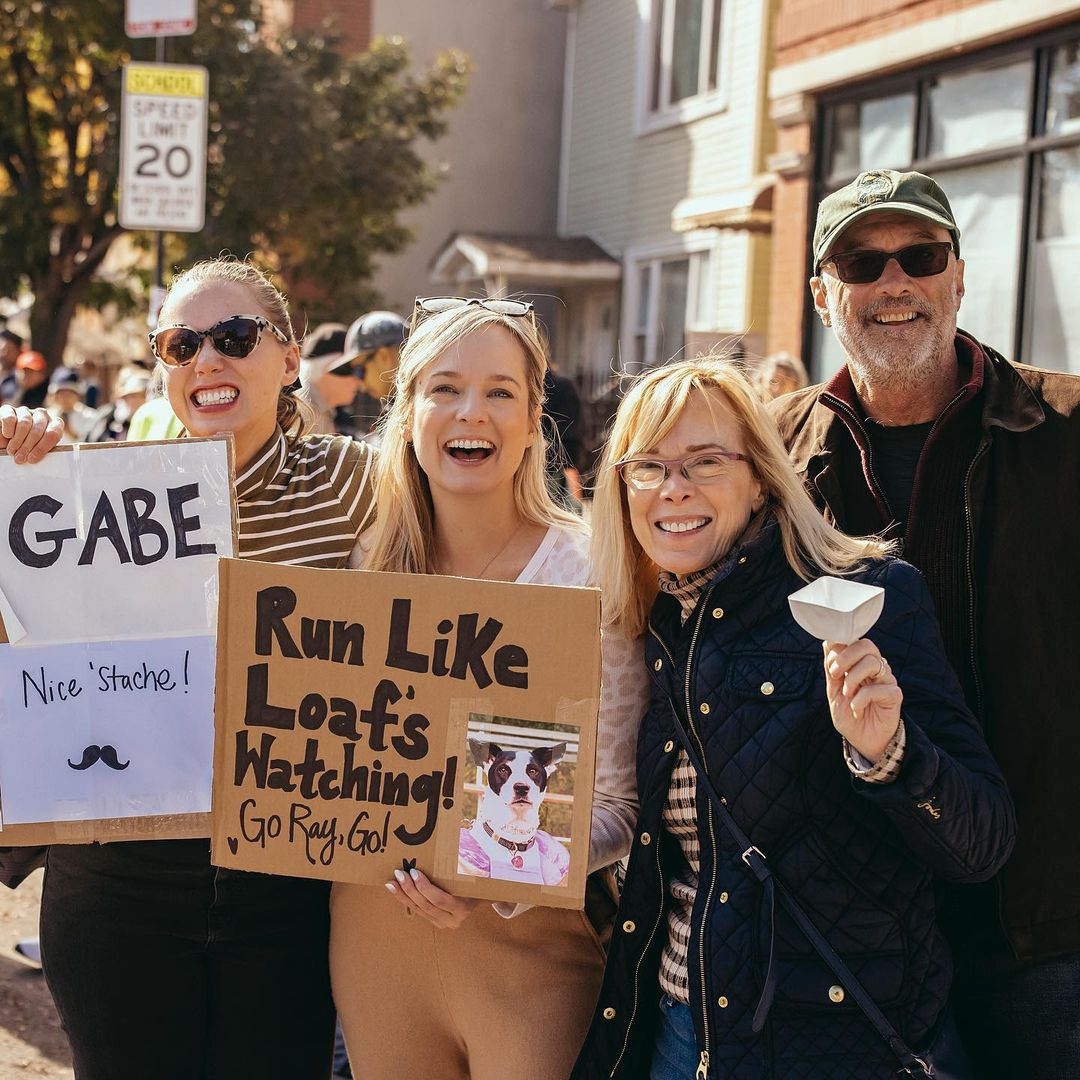 SCHOOL
SPEED
LIMIT
20
GABE
Nice 'Stache!
Run Like
Loaf's
Watching!
Go Ray, Go!